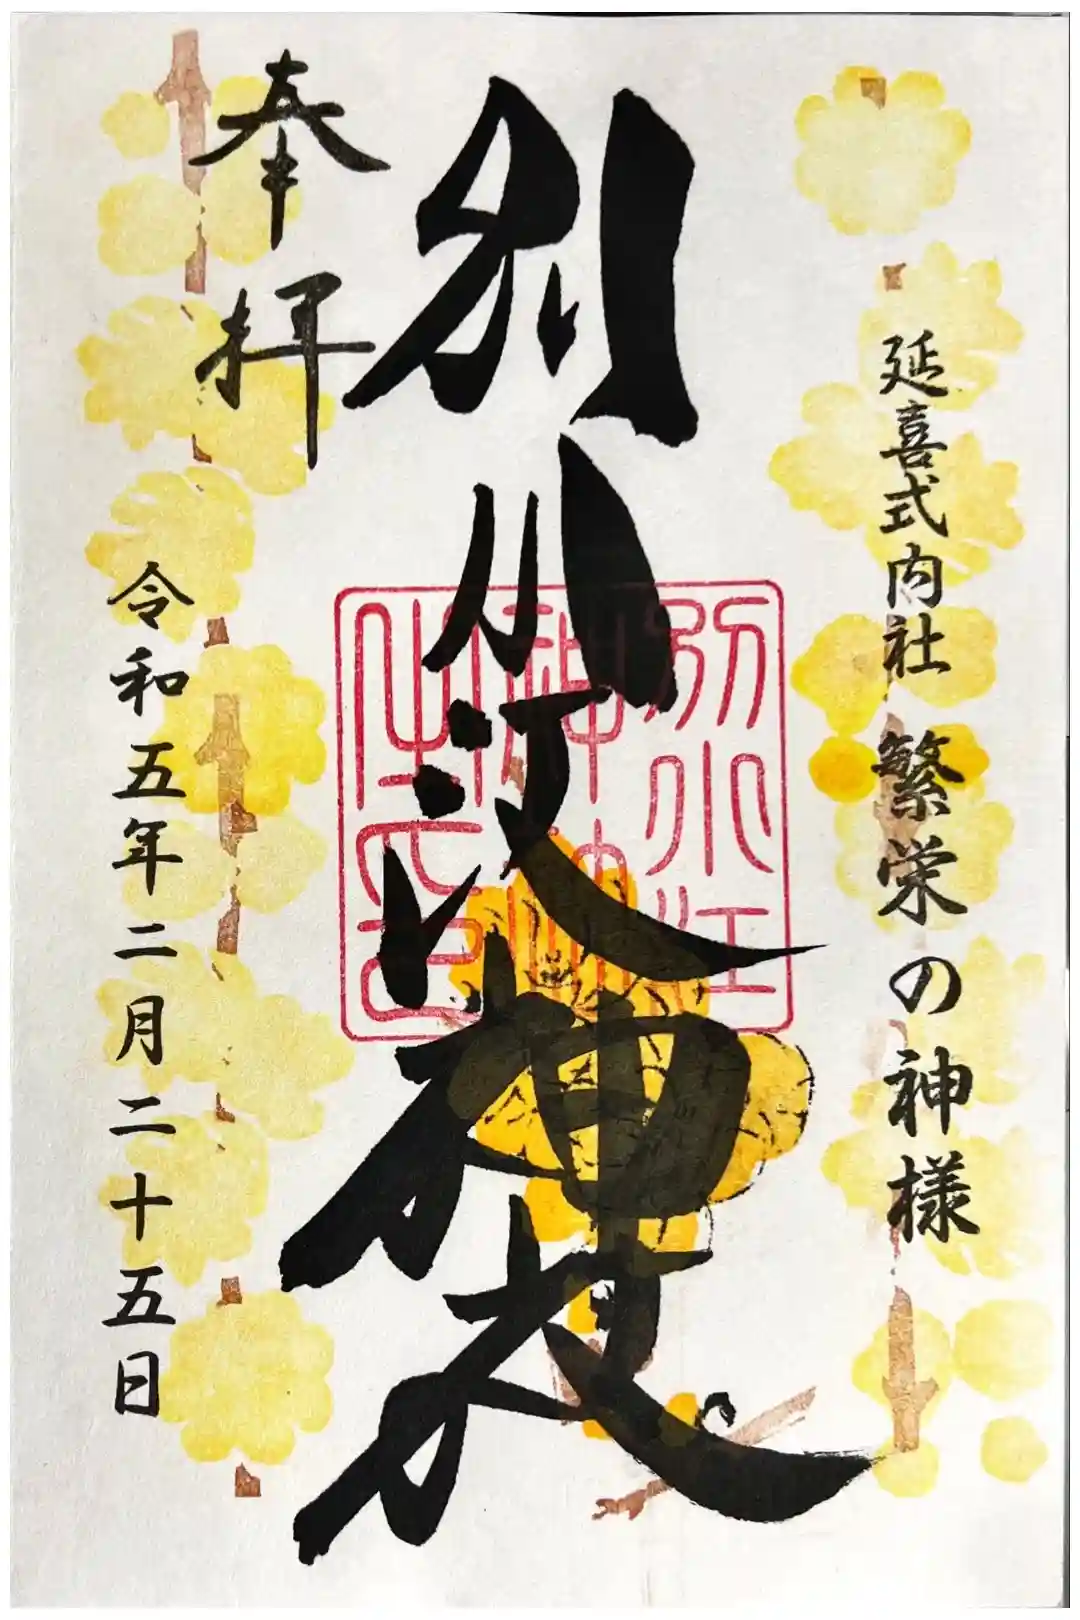 延喜式内社 繁栄の神様
別小江神社
奉拝
令和五年二月二十五日
別小江
神社
之印